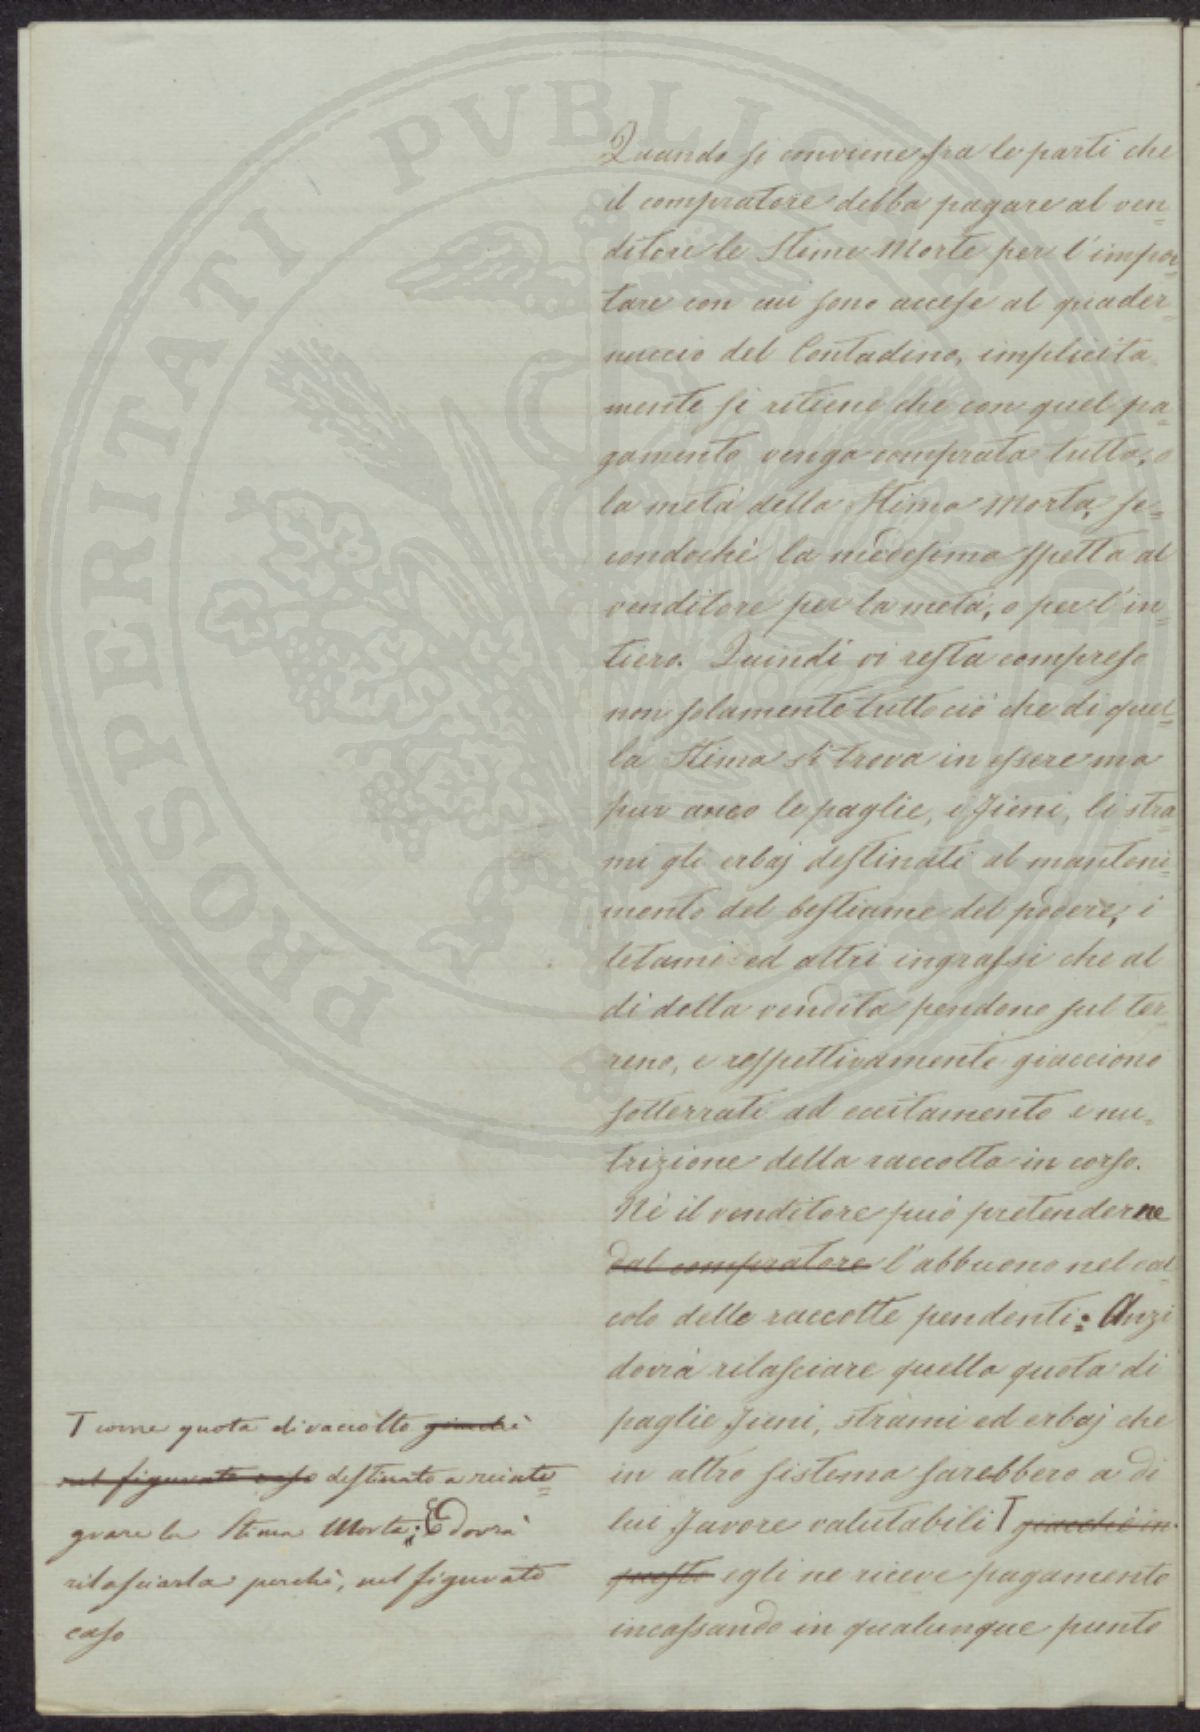 PROSPERITATI PVBLICAE
Quando si conviene fra le parti che
il compratore debba pagare al ven=
ditore le Stime Morte per l'impor=
tare con cui sono accese al quader=
nuccio del Contadino, implicita
mente si ritiene che con quel pa=
gamento venga comprata tutta, o
la metà della Stima Morta, se=
condochè la medesima spetta al
venditore per la metà, o per l'in=
tiero. Quindi vi resta compreso
non solamente tutto ciò che di quel=
la Stima si trova in essere ma
pur anco le paglie, i fieni, li stra=
mi gli erbaj destinati al manteni=
mento del bestiame del podere, i
letami ed altri ingrassi che al
dì della vendita pendono sul ter=
reno, e respettivamente giacciono
sotterrati ad eccitamento e nu=
trizione della raccolta in corso.
Nè il venditore può pretenderne
dal compratore l'abbuono nel cal=
colo delle raccolte pendenti: Anzi
dovrà rilasciare quella quota di
paglie fieni, strami ed erbaj che
in altro sistema sarebbero a di
lui favore valutabili T giacchè in
questo egli ne riceve pagamento
incassando in qualunque punto
T come quota di raccolto giacchè
nel figurato caso destinato a reinte=
grare la Stima Morta; E dovrà
rilasciarla perchè, nel figurato
caso